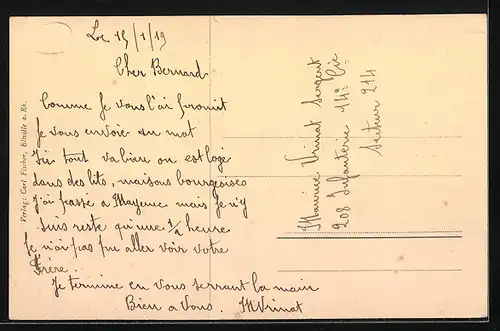 Le 15/1/19
Cher Bernard
Comme Je vous l'ai promit
Je vous envoie un mot
Ici tout va bien on est logé
dans des lits, maisons bourgeoises
J'ai passé a Mayence mais Je n'y
suis resté qu'une 1/2 heure
Je n'ai pas pu aller voir votre
Frère.
Je termine en vous serrant la main
Bien a Vous. M Vrinat
Maurice Vrinat Sergent
208 Infanterie 14e Cie
Secteur 214
Verlag: Carl Fischer, Eltville a. Rh.